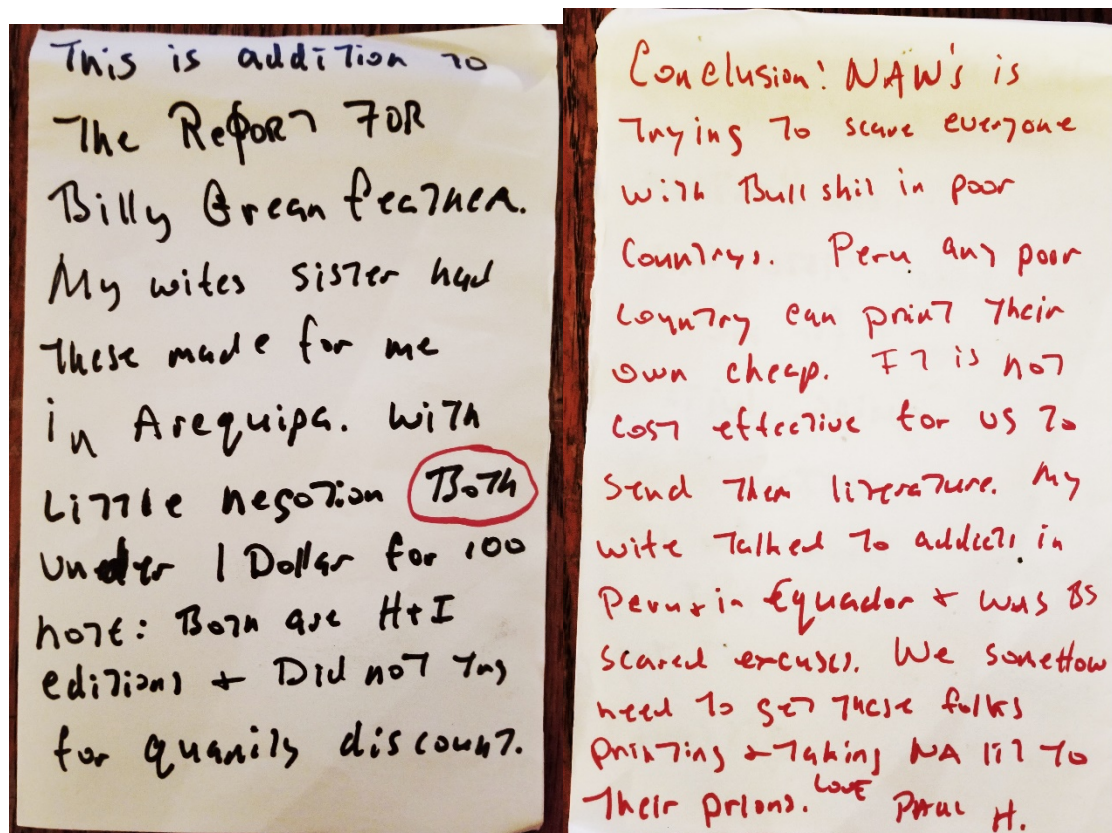 This is addition to
The Report FOR
Billy Grean feather.
My wifes sister had
these made for me
in Arequipa. With
Little negotion Both
under 1 Dollar for 100
note: Both are H+I
editions + Did not try
for quanily discount.
Conclusion! NAW's is
trying to scare everyone
with Bullshit in poor
Countrys. Peru any poor
country can print their
own cheap. It is not
cost effective for us to
send them literature. My
wife talked to addicts in
Peru + in Equador + was BS
scared excuses. We somehow
need to get these folks
printing + taking NA lit to
their prions. Love PAUL H.